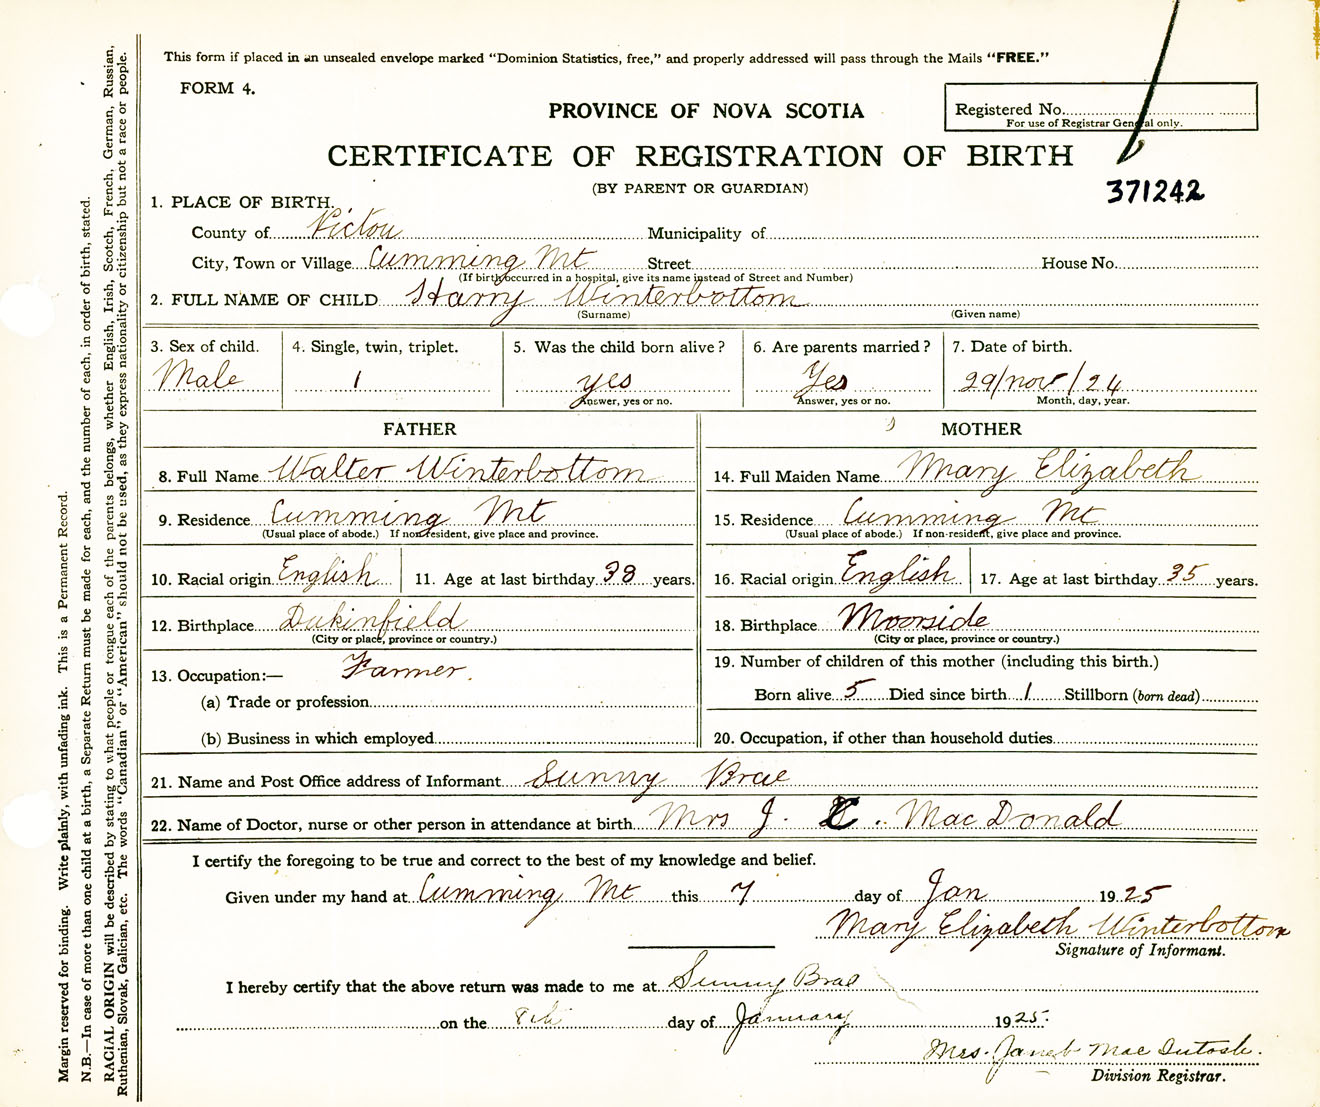 This form if placed in an unsealed envelope marked “Dominion Statistics, free,” and properly addressed will pass through the Mails “FREE.”
FORM 4.
Registered No.
For use of Registrar General only.
PROVINCE OF NOVA SCOTIA
CERTIFICATE OF REGISTRATION OF BIRTH
(BY PARENT OR GUARDIAN)
371242
1. PLACE OF BIRTH.
County of Pictou Municipality of
City, Town or Village Cumming Mt Street House No.
(If birth occurred in a hospital, give its name instead of Street and Number)
2. FULL NAME OF CHILD Harry Winterbottom
(Surname) (Given name)
3. Sex of child. 4. Single, twin, triplet. 5. Was the child born alive? 6. Are parents married? 7. Date of birth.
Male 1 yes Yes 29/nov/24
Answer, yes or no. Answer, yes or no. Month, day, year.
FATHER MOTHER
8. Full Name Walter Winterbottom 14. Full Maiden Name Mary Elizabeth
9. Residence Cumming Mt 15. Residence Cumming Mt
(Usual place of abode.) If non-resident, give place and province. (Usual place of abode.) If non-resident, give place and province.
10. Racial origin English 11. Age at last birthday 38 years. 16. Racial origin English 17. Age at last birthday 35 years.
12. Birthplace Dukinfield 18. Birthplace Moorside
(City or place, province or country.) (City or place, province or country.)
13. Occupation:— Farmer. 19. Number of children of this mother (including this birth.)
(a) Trade or profession Born alive 5 Died since birth 1 Stillborn (born dead)
(b) Business in which employed 20. Occupation, if other than household duties
21. Name and Post Office address of Informant Sunny Brae
22. Name of Doctor, nurse or other person in attendance at birth Mrs J. MacDonald
I certify the foregoing to be true and correct to the best of my knowledge and belief.
Given under my hand at Cumming Mt this 7 day of Jan 1925
Mary Elizabeth Winterbottom
Signature of Informant.
I hereby certify that the above return was made to me at Sunny Brae
on the 8th day of January 1925.
Mrs. Janet MacIntosh.
Division Registrar.
Margin reserved for binding. Write plainly, with unfading ink. This is a Permanent Record.
N.B.—In case of more than one child at a birth, a Separate Return must be made for each, and the number of each, in order of birth, stated.
RACIAL ORIGIN will be described by stating to what people or tongue each of the parents belongs, whether English, Irish, Scotch, French, German, Russian,
Ruthenian, Slovak, Galician, etc. The words “Canadian” or “American” should not be used, as they express nationality or citizenship but not a race or people.